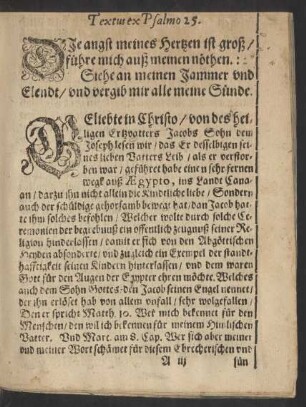 Textus ex Psalmo 25.
DJe angst meines Hertzen ist groß /
führe mich auß meinen nöthen. ::
Siehe an meinen Jammer vnd
Elendt / vnd vergib mir alle meine Sünde.
GEliebte in Christo / von des hei-
ligen Ertzvatters Jacobs Sohn dem
Joseph lesen wir / das Er desselbigen sei-
nes lieben Vatters Leib / als er verstor-
ben war / geführet habe einen sehr fernen
weg auß Ægypto, ins Landt Cana-
an / darzu ihn nicht allein die Kindtliche liebe / Sondern
auch der schüldige gehorsamb bewegt hat / dan Jacob hat-
te ihm solches befohlen / Welcher wolte durch solche Ce-
remonien der begrebnuß ein offentlich zeugnuß seiner Re-
ligion hinderlassen / damit er sich von den Abgöttischen
Heyden absonderte / vnd zugleich ein Exempel der standt-
hafftigkeit seinen Kindern hinterlassen / vnd dem waren
Gott für den Augen der Egypter ehren möchte. Welches
auch dem Sohn Gottes / den Jacob seinen Engel nennet /
der ihn erlöset hab von allem vnfall / sehr wolgefallen /
Den er spricht Matth. 10. Wer mich bekennet für den
Menschen / den wil ich bekennen für meinem Himlischen
Vatter. Vnd Marc. am 8. Cap. Wer sich aber meiner
vnd meiner Wort schämet für diesem Ehrecherischen vnd
A iij sün